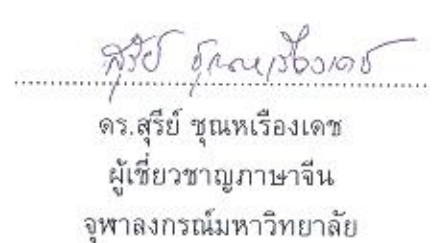 สุรีย์ ชุณหเรืองเดช
ดร.สุรีย์ ชุณหเรืองเดช
ผู้เชี่ยวชาญภาษาจีน
จุฬาลงกรณ์มหาวิทยาลัย